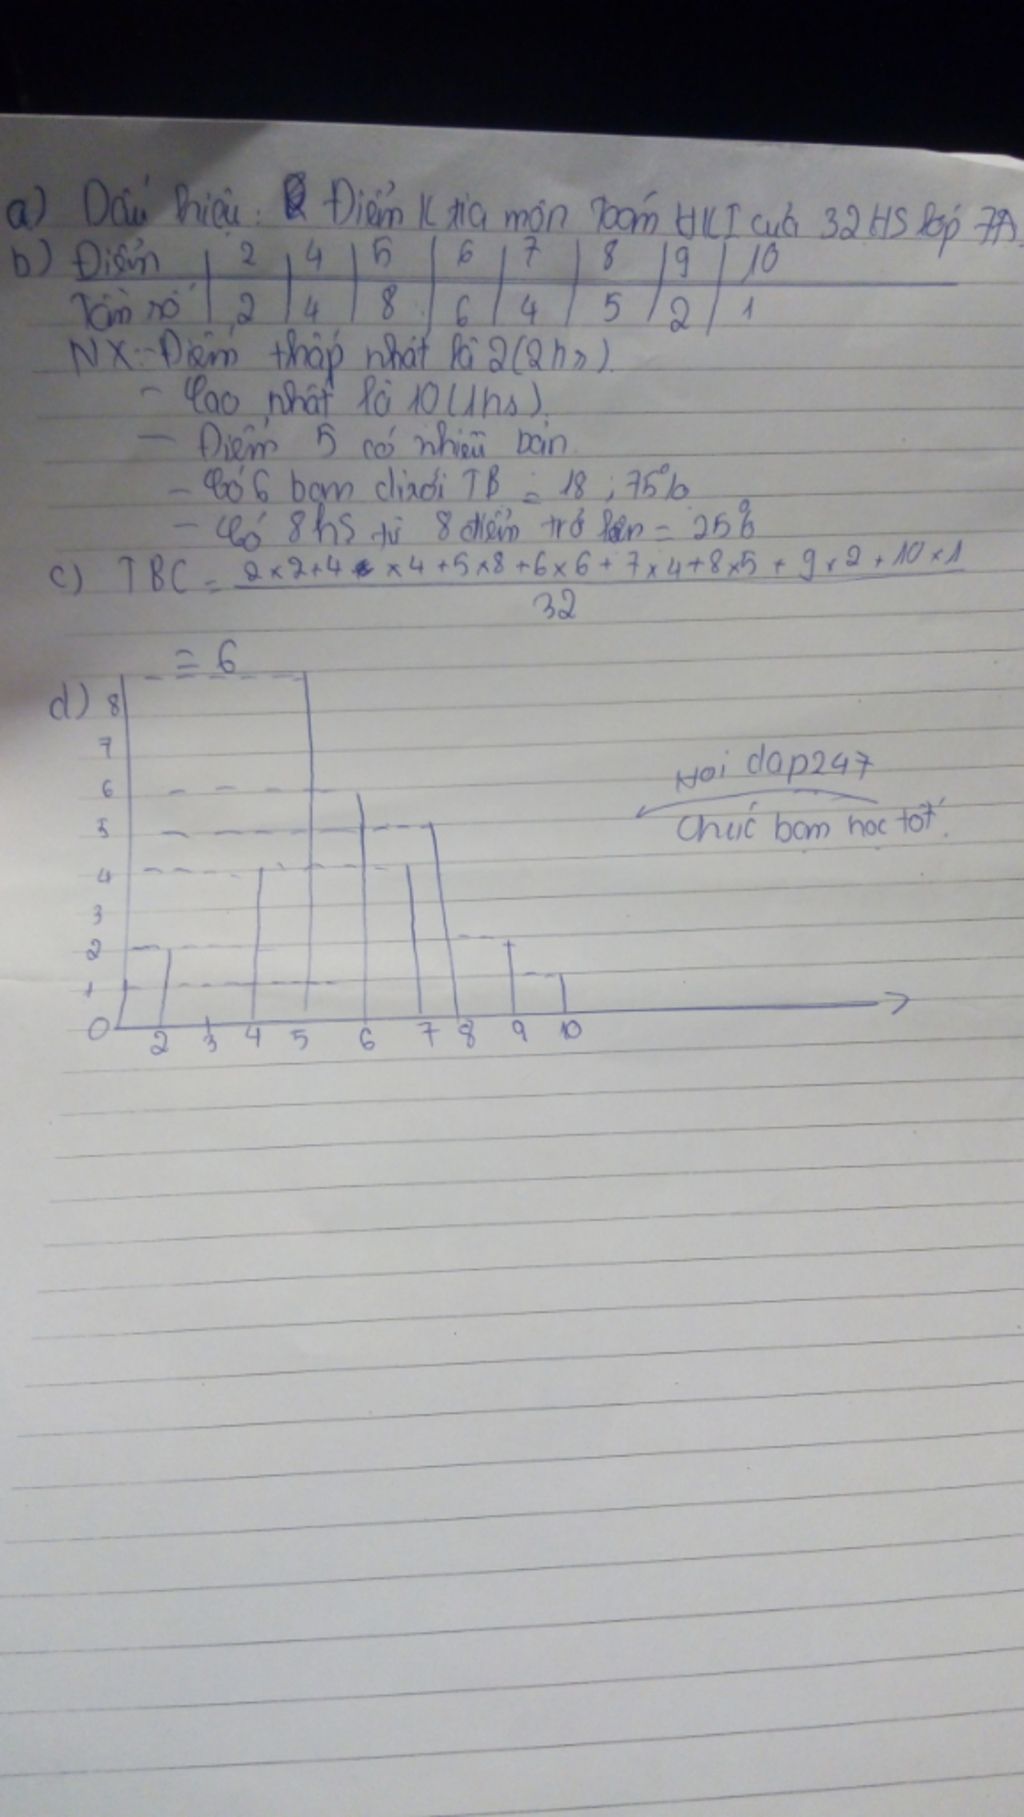 a) Dấu hiệu: Điểm K tra môn Toán HKI của 32 HS lớp 7A.
b) Điểm | 2 | 4 | 5 | 6 | 7 | 8 | 9 | 10
Tần số | 2 | 4 | 8 | 6 | 4 | 5 | 2 | 1
NX: - Điểm thấp nhất là 2 (2hs).
- Cao nhất là 10 (1hs).
- Điểm 5 có nhiều bạn.
- Có 6 bạn dưới TB = 18,75%
- Có 8 hs từ 8 điểm trở lên = 25%
c) TBC = 2 x 2 + 4 x 4 + 5 x 8 + 6 x 6 + 7 x 4 + 8 x 5 + 9 x 2 + 10 x 1
32
= 6
d) 8
7
6
5
4
3
2
1
0 2 3 4 5 6 7 8 9 10
Hoi dap247
Chúc bạn học tốt.